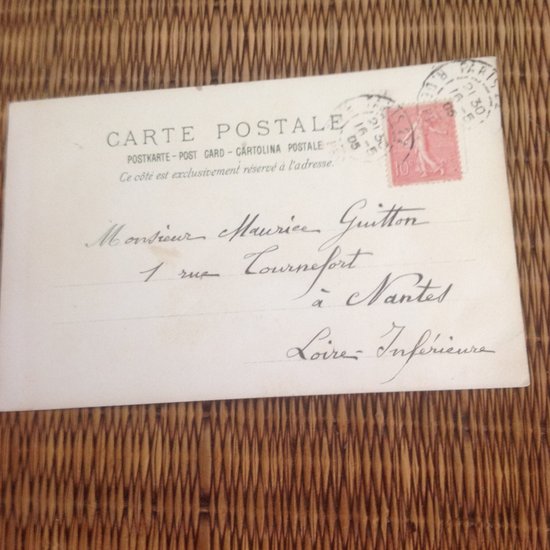 CARTE POSTALE
POSTKARTE - POST CARD - CARTOLINA POSTALE
Ce côté est exclusivement réservé à l'adresse.
PARIS
21 30
16 - 5
05
PARIS
21 30
16 - 5
05
10
Monsieur Maurice Guitton
1 rue Tournefort
à Nantes
Loire-Inférieure